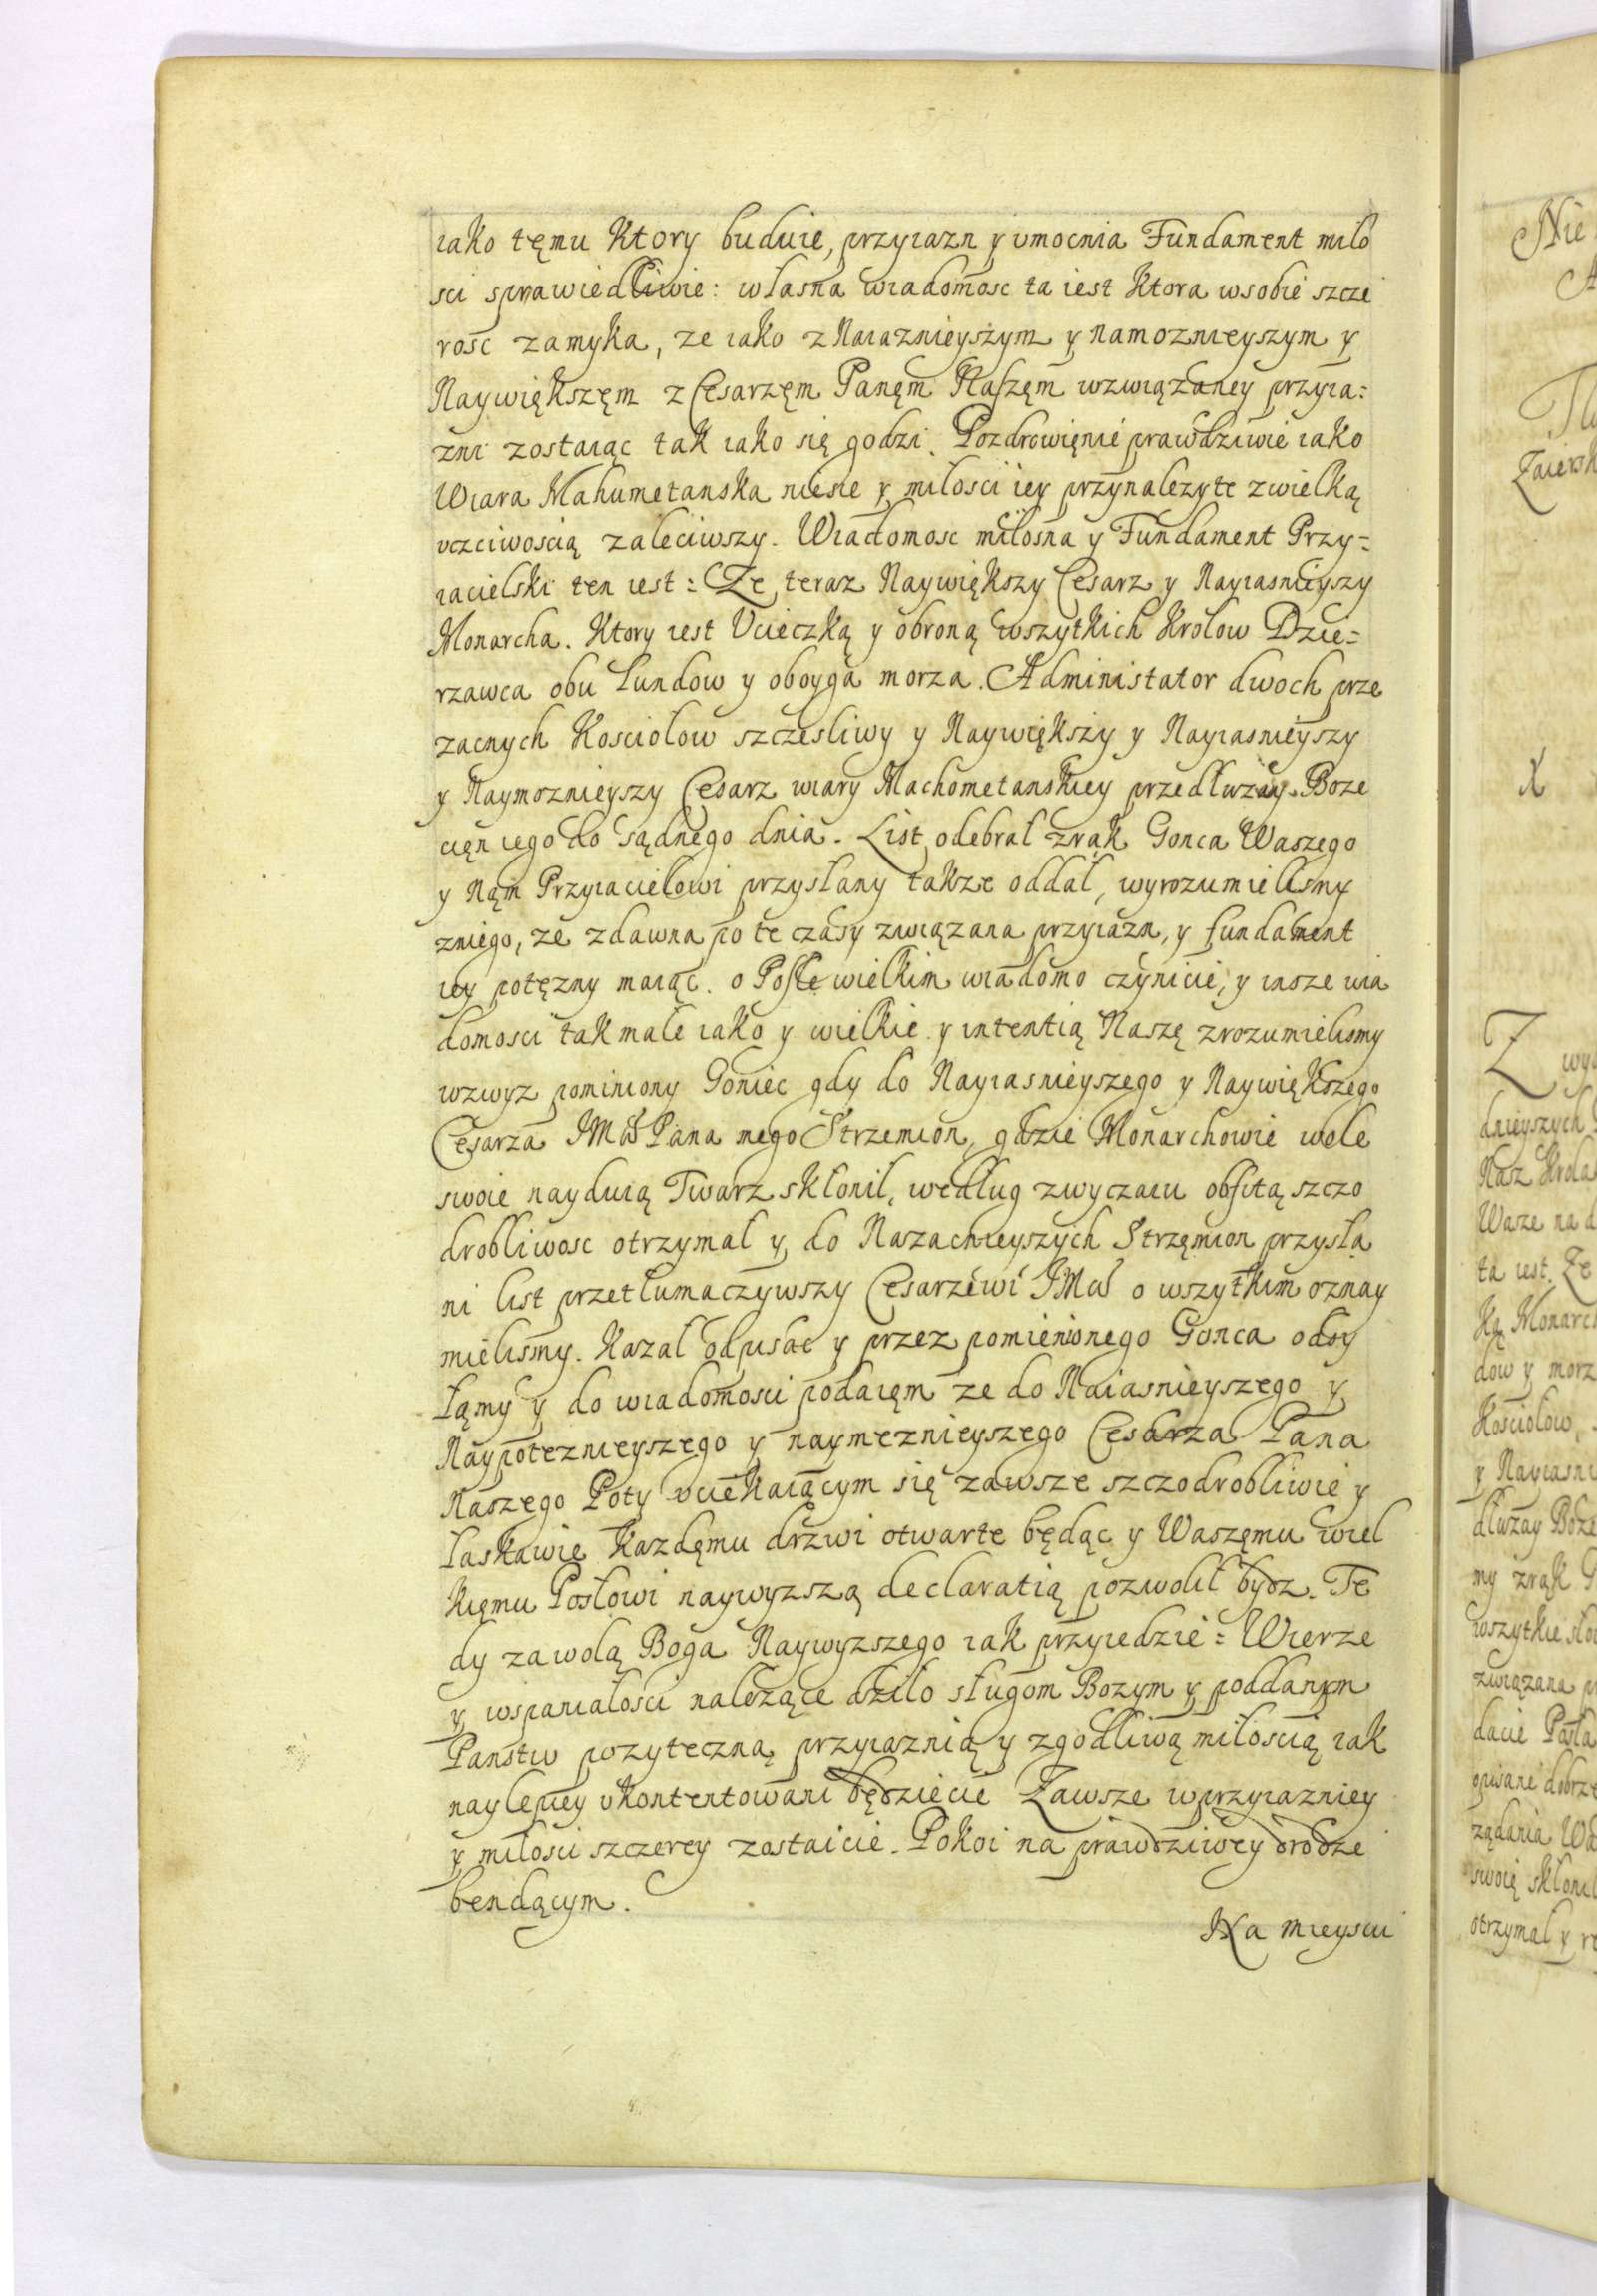 iako tęmu Ktory buduie, przyiazn y vmocnia Fundament milo
sci sprawiedliwie: własna wiadomosc ta iest Ktora wsobie szcze
rosc zamyka, ze iako z Naiaznieyszym y namoznieyszym y
Naywiększęm z Cesarzęm Panęm Naszęm wzwiązaney przyia:
zni zostaiąc tak iako się godzi. Pozdrowięnie prawdziwie iako
Wiara Mahumetanska niesie y milosci iey przynalezyte zwielką
vczciwoscią zaleciwszy. Wiadomosc miłosna y Fundament Przy=
iacielski ten iest: Ze teraz Naywiększy Cesarz y Nayiasnieyszy
Monarcha. Ktory iest Vcieczką y obroną wszytkich Krolow Dzie=
rzawca obu Lundow y oboyga morza. Administator dwoch prze
zacnych Kosciolow szczesliwy y Naywiększy y Nayiasnieyszy
y Naymoznieyszy Cesarz wiary Machometanskiey przedłuzay Boze
cięn iego do sądnego dnia. List odebral zrąk Gonca Waszego
y Nąm Przyiacielowi przysłany takze oddał, wyrozumielismy
zniego, ze zdawna po te czasy związana przyiazn, y fundament
iey potęzny maiąc. o Posle wielkim wiadomo czynicie, y insze wia
domosci tak małe iako y wielkie y intentią Naszę zrozumielismy
wzwyz pominiony Goniec gdy do Nayiasnieyszego y Naywiększego
Cesarza JMci Pana mego Strzemion, gdzie Monarchowie wole
swoie nayduią Twarz skłonil, według zwyczaiu obfitą szczo
drobliwosc otrzymal y do Naszachieyszych Strzęmion przysła
ni list przetłumaczywszy Cesarzewi JMci o wszytkim oznay
mielismy. Kazal odpisac y przez pomienionego Gonca odsy
łąmy y do wiadomosci podaięm ze do Naiasnieyszego y
Naypotęznieyszego y naymeznieyszego Cesarza Pana
Naszego Poty vciekaiącym się zawsze szczodrobliwie y
łaskawie Kazdęmu drzwi otwarte będąc y Waszęmu wiel
kięmu Posłowi naywyzszą declaratią pozwolił bydz. Te
dy za wolą Boga Naywyzszego iak przyiedzie: Wierze
y wspanialosci nalezące dziło sługom Bozym y poddanym
Panstw pozyteczną przyiaznią y zgodliwą miłoscią iak
naylepiey vkontentowani będziecie Zawsze wprzyiazniey
y milosci szczerey zostaicie. Pokoi na prawdziwey drodze
bendącym.
Na mieyscu